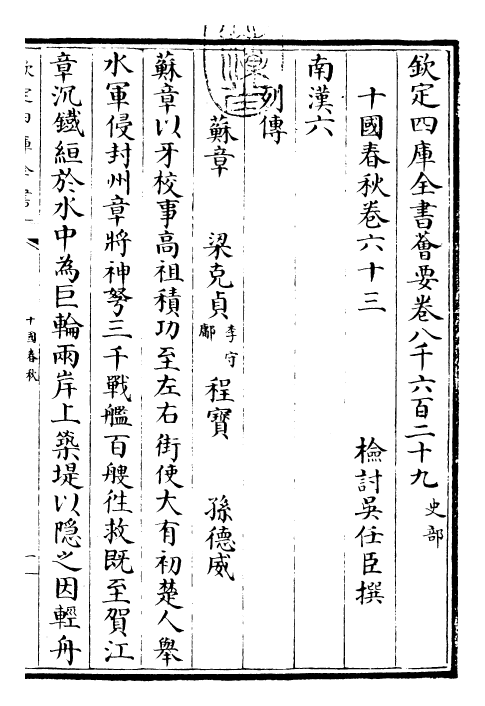 欽定四庫全書薈要卷八千六百二十九 史部
十國春秋卷六十三 檢討吳任臣撰
南漢六
列傳
蘇章 梁克貞 李守鄘 程寶 孫德威
蘇章以牙校事高祖積功至左右街使大有初楚人舉
水軍侵封州章將神弩三千戰艦百艘徃救既至賀江
章沉鐵絙於水中為巨輪兩岸上築堤以隐之因輕舟
欽定四庫全書
十國春秋
一